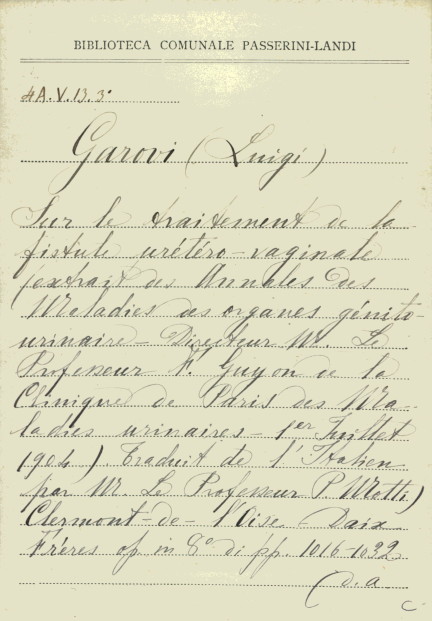 BIBLIOTECA COMUNALE PASSERINI-LANDI
4A.V.13.3°
Garovi (Luigi)
Sur le traitement de la
fistule urétéro-vaginale
(extrait des Annales des
Maladies des organes génito-
urinaire - Directeur Mr. Le
Professeur F. Guyon de la
Clinique de Paris des Ma-
ladies urinaires - 1er Juillet
1904). Traduit de l'Italien
par Mr. Le Professeur P. Motti)
Clermont-de-l'Oise - Daix
Frères op in 8° di pp. 1016-1032
(d.a.
C